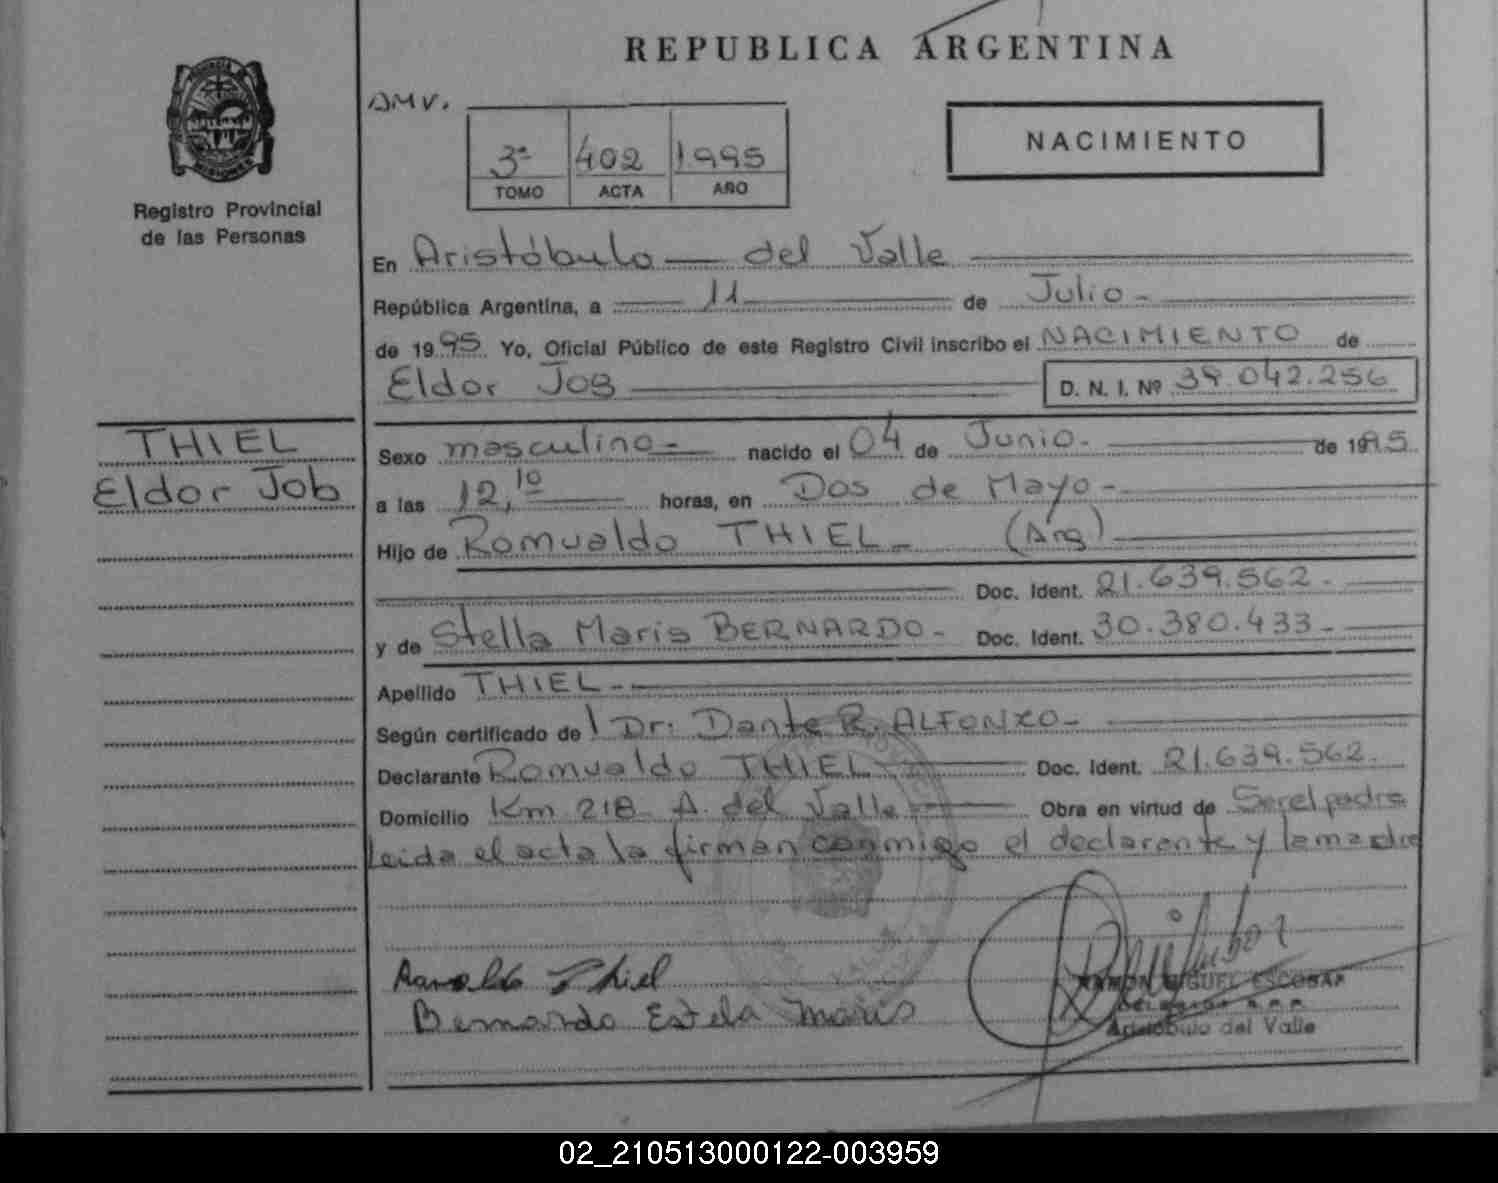 REPUBLICA ARGENTINA
AMV.
NACIMIENTO
3ª 402 1995
TOMO ACTA AÑO
PROVINCIA DE MISIONES
Registro Provincial
de las Personas
En Aristóbulo del Valle
República Argentina, a 11 de Julio
de 1995 Yo, Oficial Público de este Registro Civil inscribo el NACIMIENTO de
Eldor Job D. N. I. Nº 39.042.256
THIEL
Eldor Job
Sexo masculino nacido el 04 de Junio. de 1995
a las 12,10 horas, en Dos de Mayo
Hijo de Romualdo THIEL (Arg)
Doc. Ident. 21.639.562
y de Stella Maris BERNARDO Doc. Ident. 30.380.433
Apellido THIEL
Según certificado de Dr: Dante R. ALFONZO
Declarante Romualdo THIEL Doc. Ident. 21.639.562.
Domicilio Km 218 A. del Valle Obra en virtud de Ser el padre
Leida el acta la firman conmigo el declarante y la madre
Thiel
Bernardo Estela Maris
RAMON MIGUEL ESCOBAR
Aristóbulo del Valle
02_210513000122-003959